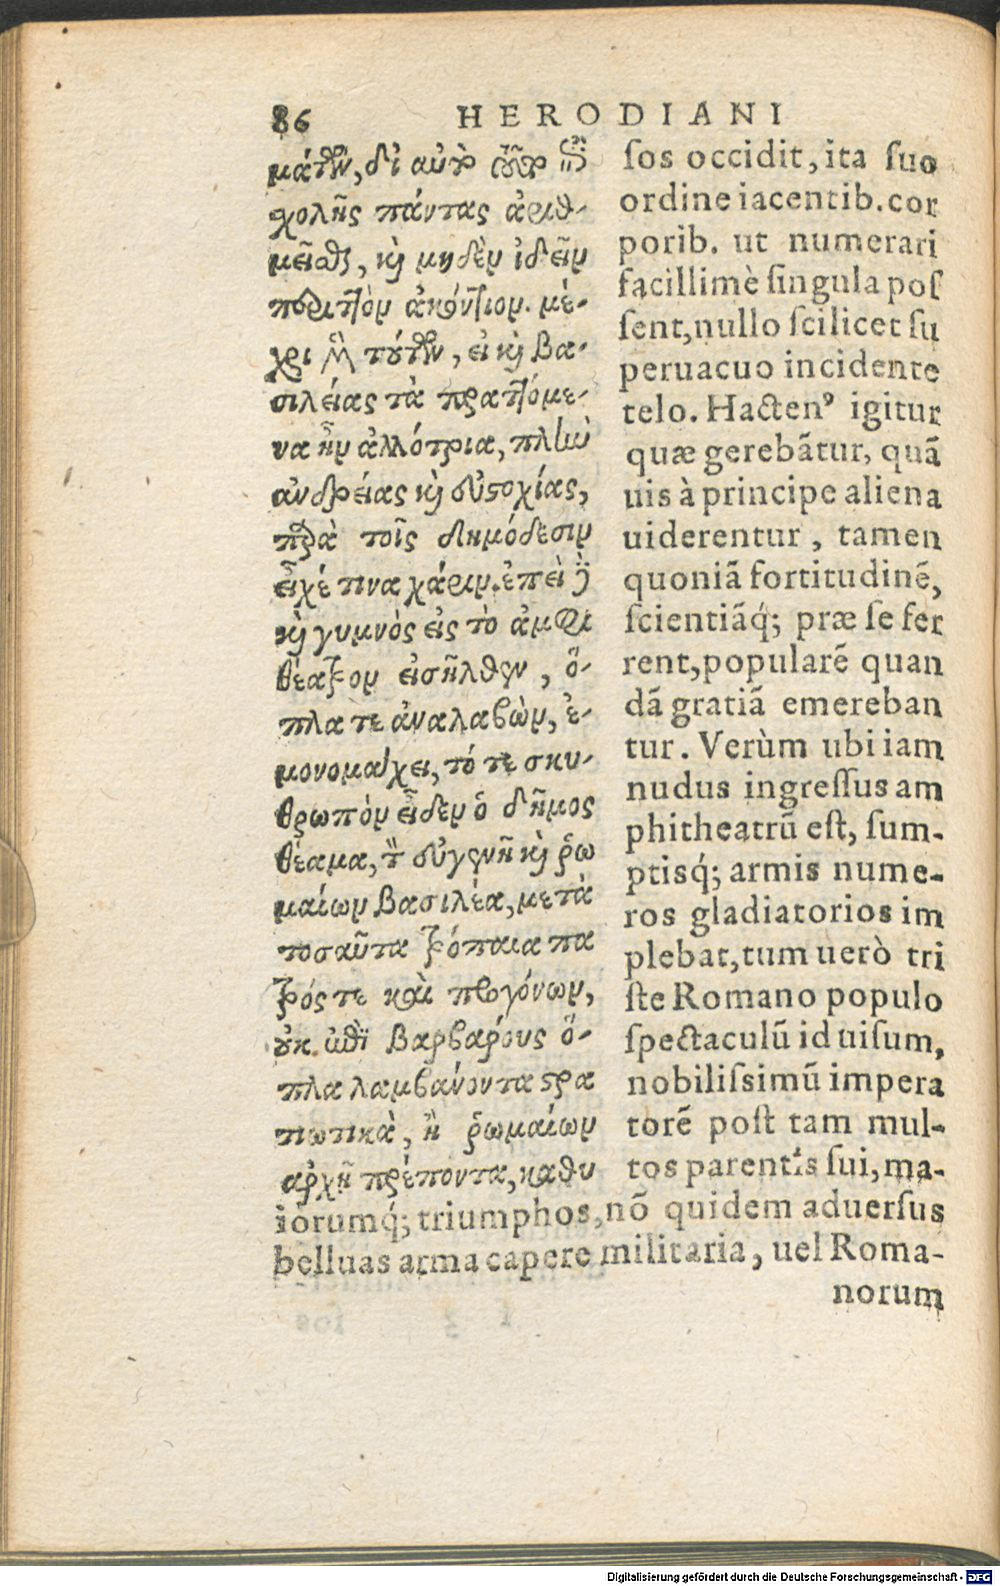 86 HERODIANI
μάτων, δι' αὐτὸ τοῦτο ἐπὶ
χολῆς πάντας ἀριθ-
μεῖσθαι, κὶ μηδὲν ἰδεῖν
περιττὸν ἀκόντιον. μέ-
χρι μὲν τούτων, εἰ κὶ βα-
σιλείας τὰ πραττόμε-
να ἦν ἀλλότρια, πλὴν
ἀνδρείας κὶ εὐστοχίας,
παρὰ τοῖς δημόδεσιν
εἶχέ τινα χάριν. ἐπεὶ δὲ
κὶ γυμνὸς εἰς τὸ ἀμφι
θέατρον εἰσῆλθεν, ὅ-
πλα τε ἀναλαβὼν, ἐ-
μονομάχει, τό τε σκυ-
θρωπὸν εἶδεν ὁ δῆμος
θέαμα, τὸν εὐγενῆ κὶ ῥω
μαίων βασιλέα, μετὰ
τοσαῦτα τρόπαια πα
τρός τε καὶ προγόνων,
οὐκ ἐπὶ βαρβάρους ὅ-
πλα λαμβάνοντα στρα
τιωτικὰ, ἢ ῥωμαίων
ἀρχῇ πρέποντα, καθυ
sos occidit, ita suo
ordine iacentib. cor
porib. ut numerari
facillimè singula pos
sent, nullo scilicet su
peruacuo incidente
telo. Hacten⁹ igitur
quæ gerebãtur, quã
uis à principe aliena
uiderentur, tamen
quoniã fortitudinẽ,
scientiãq́; præ se fer
rent, popularẽ quan
dã gratiã emereban
tur. Verùm ubi iam
nudus ingressus am
phitheatrũ est, sum-
ptisq́; armis nume-
ros gladiatorios im
plebat, tum uerò tri
ste Romano populo
spectaculũ id uisum,
nobilissimũ impera
torẽ post tam mul-
tos parentis sui, ma-
iorumq́; triumphos, nõ quidem aduersus
belluas arma capere militaria, uel Roma-
norum
Digitalisierung gefördert durch die Deutsche Forschungsgemeinschaft - DFG